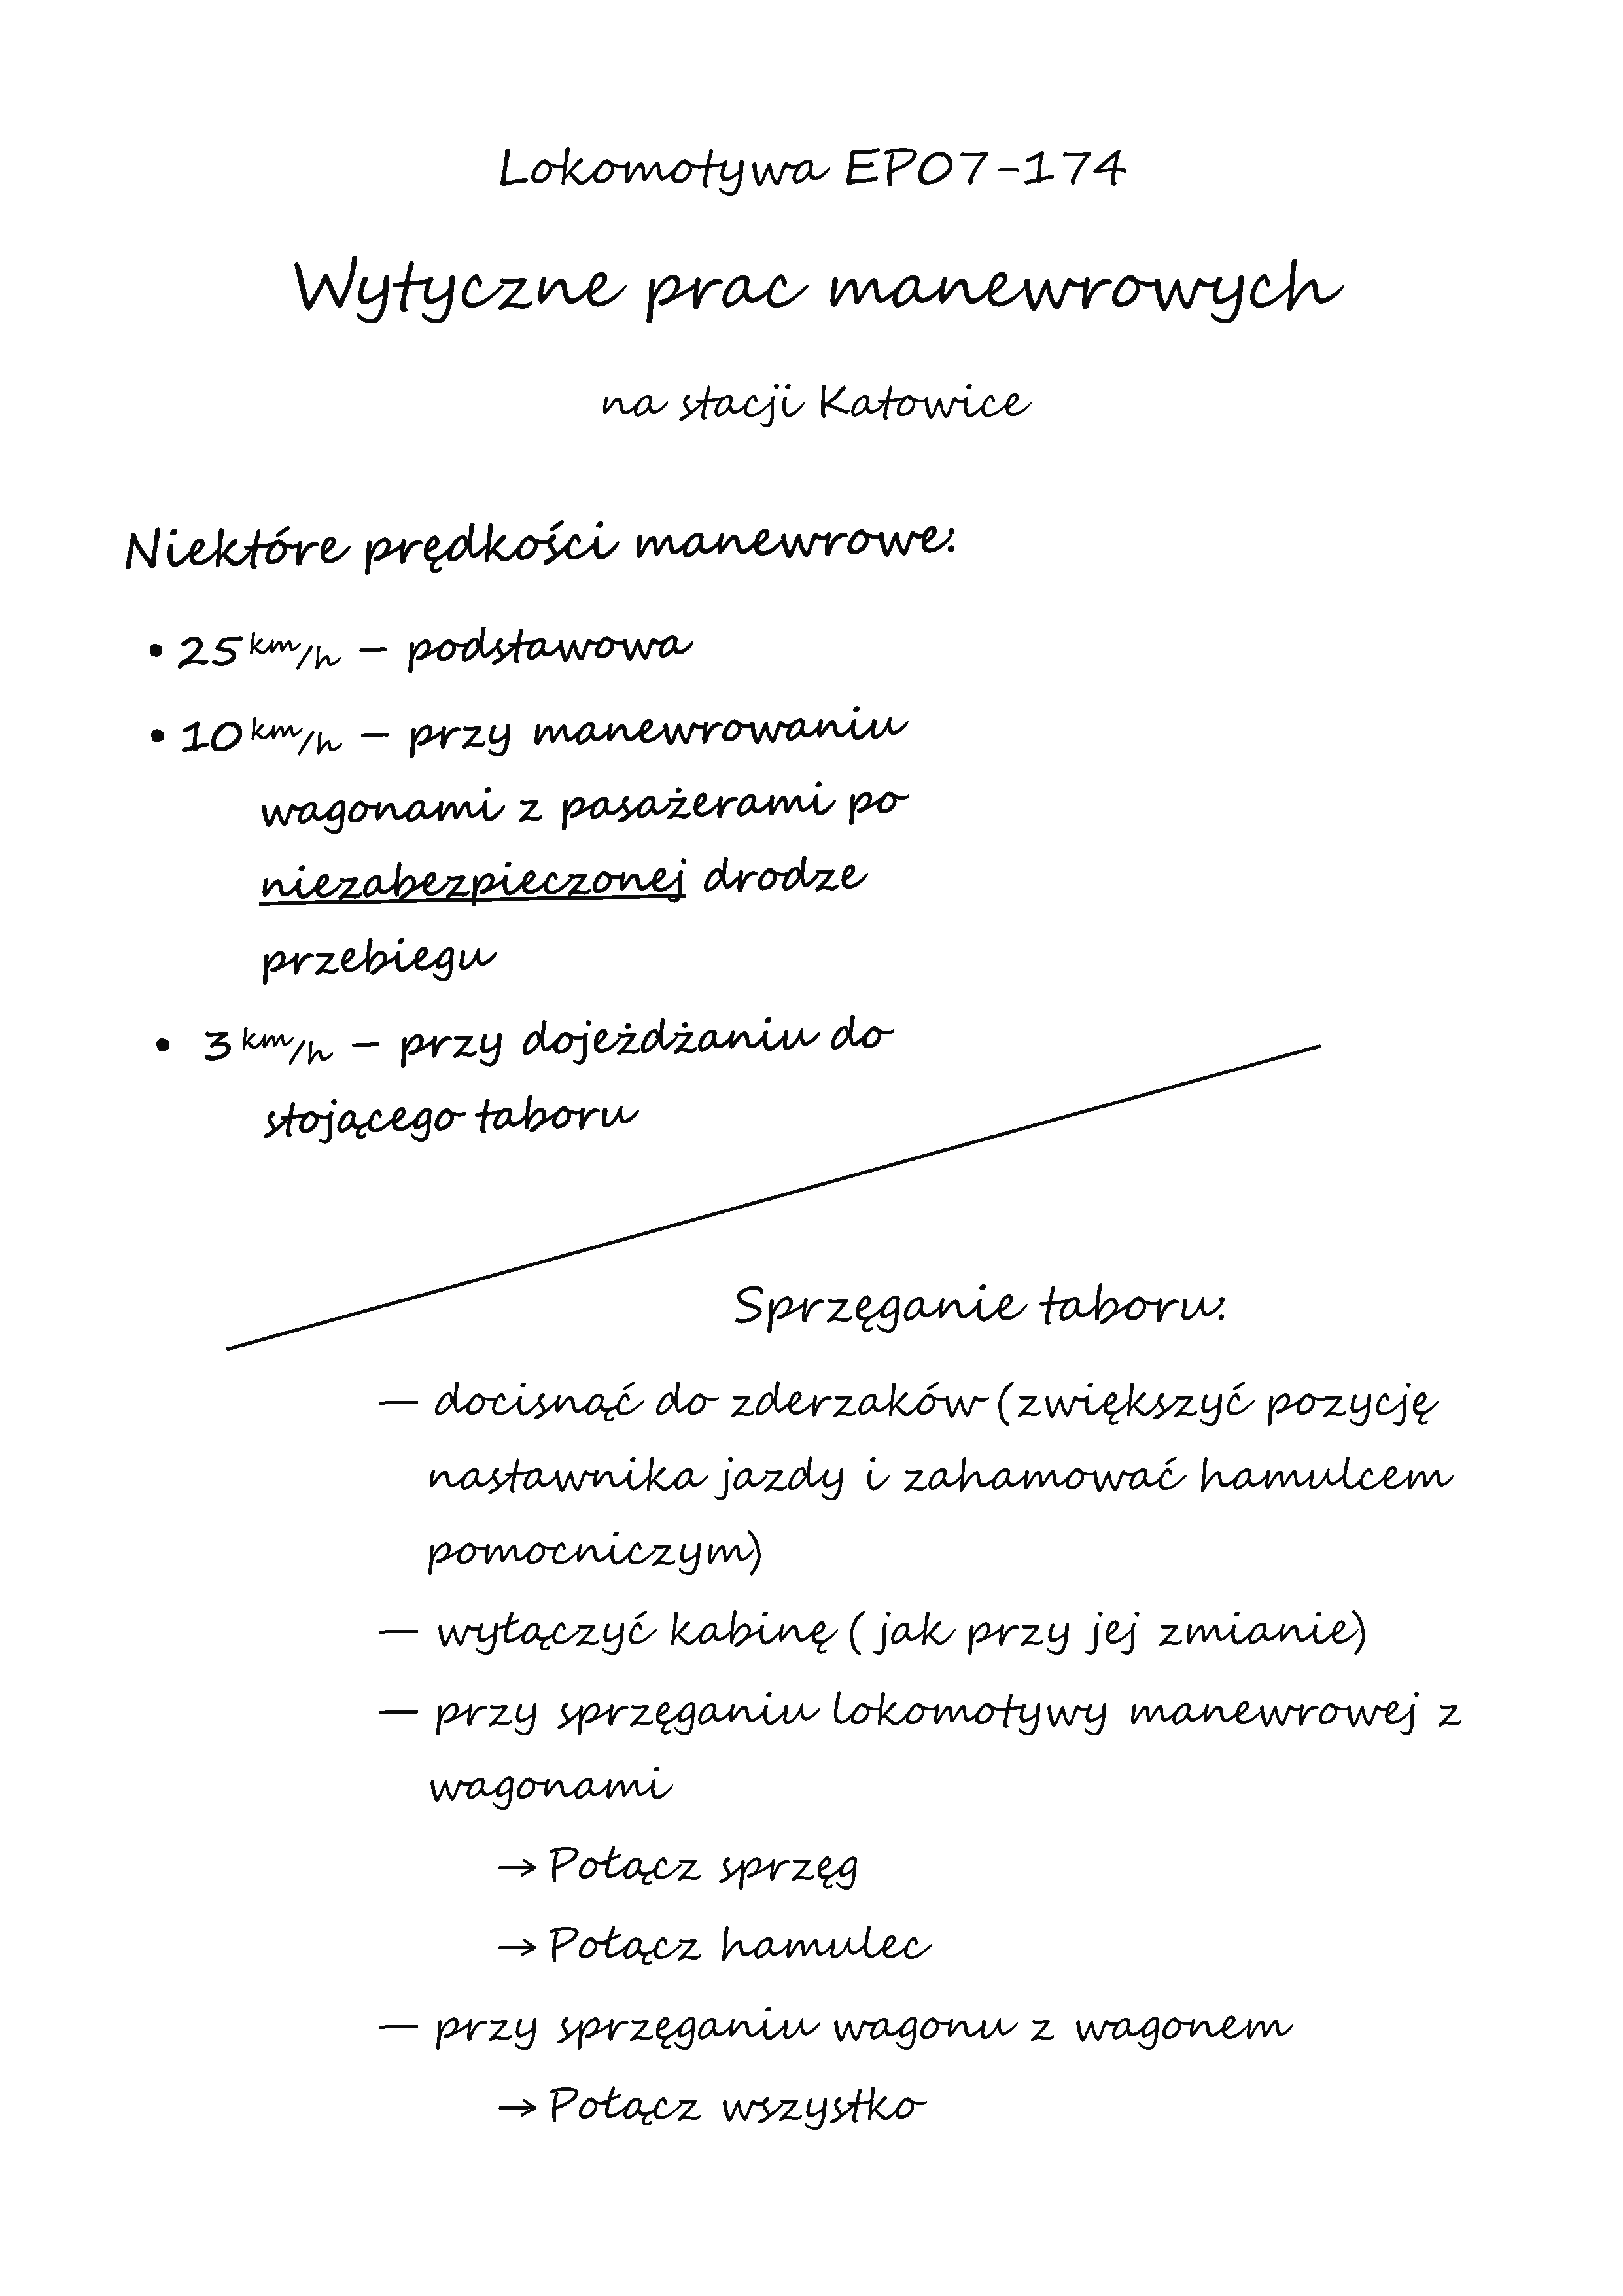 Lokomotywa EP07-174
Wytyczne prac manewrowych
na stacji Katowice
Niektóre prędkości manewrowe:
• 25 km/h – podstawowa
• 10 km/h – przy manewrowaniu
wagonami z pasażerami po
niezabezpieczonej drodze
przebiegu
• 3 km/h – przy dojeżdżaniu do
stojącego taboru
Sprzęganie taboru:
— docisnąć do zderzaków (zwiększyć pozycję
nastawnika jazdy i zahamować hamulcem
pomocniczym)
— wyłączyć kabinę ( jak przy jej zmianie)
— przy sprzęganiu lokomotywy manewrowej z
wagonami
→ Połącz sprzęg
→ Połącz hamulec
— przy sprzęganiu wagonu z wagonem
→ Połącz wszystko